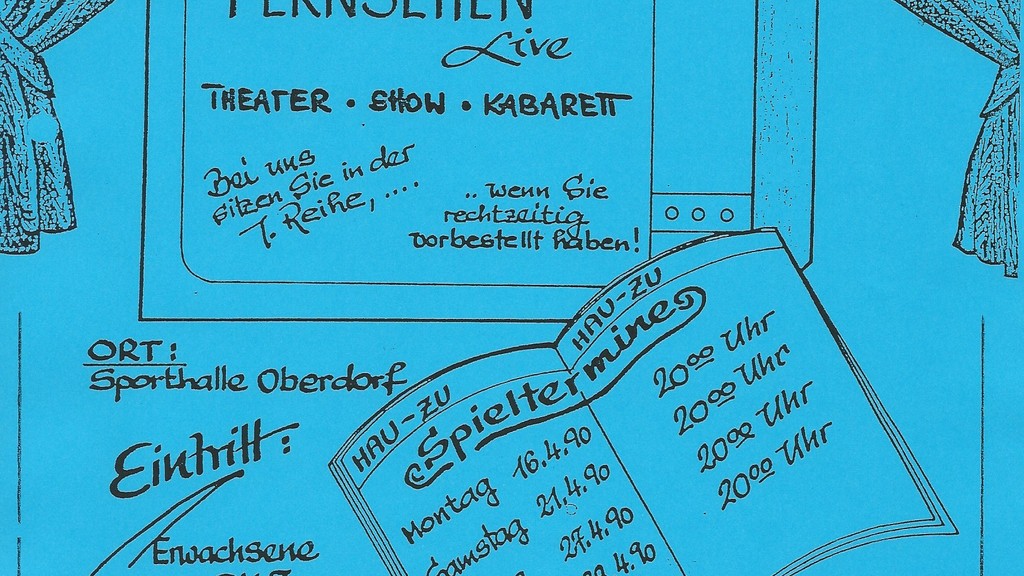 FERNSEHEN
Live
THEATER • SHOW • KABARETT
Bei uns
sitzen Sie in der
1. Reihe, ....
.. wenn Sie
rechtzeitig
vorbestellt haben!
ORT:
Sporthalle Oberdorf
Eintritt:
Erwachsene
HAU-ZU
HAU-ZU
Spieltermine
Montag 16.4.90 20⁰⁰ Uhr
Samstag 21.4.90 20⁰⁰ Uhr
27.4.90 20⁰⁰ Uhr
4.90 20⁰⁰ Uhr